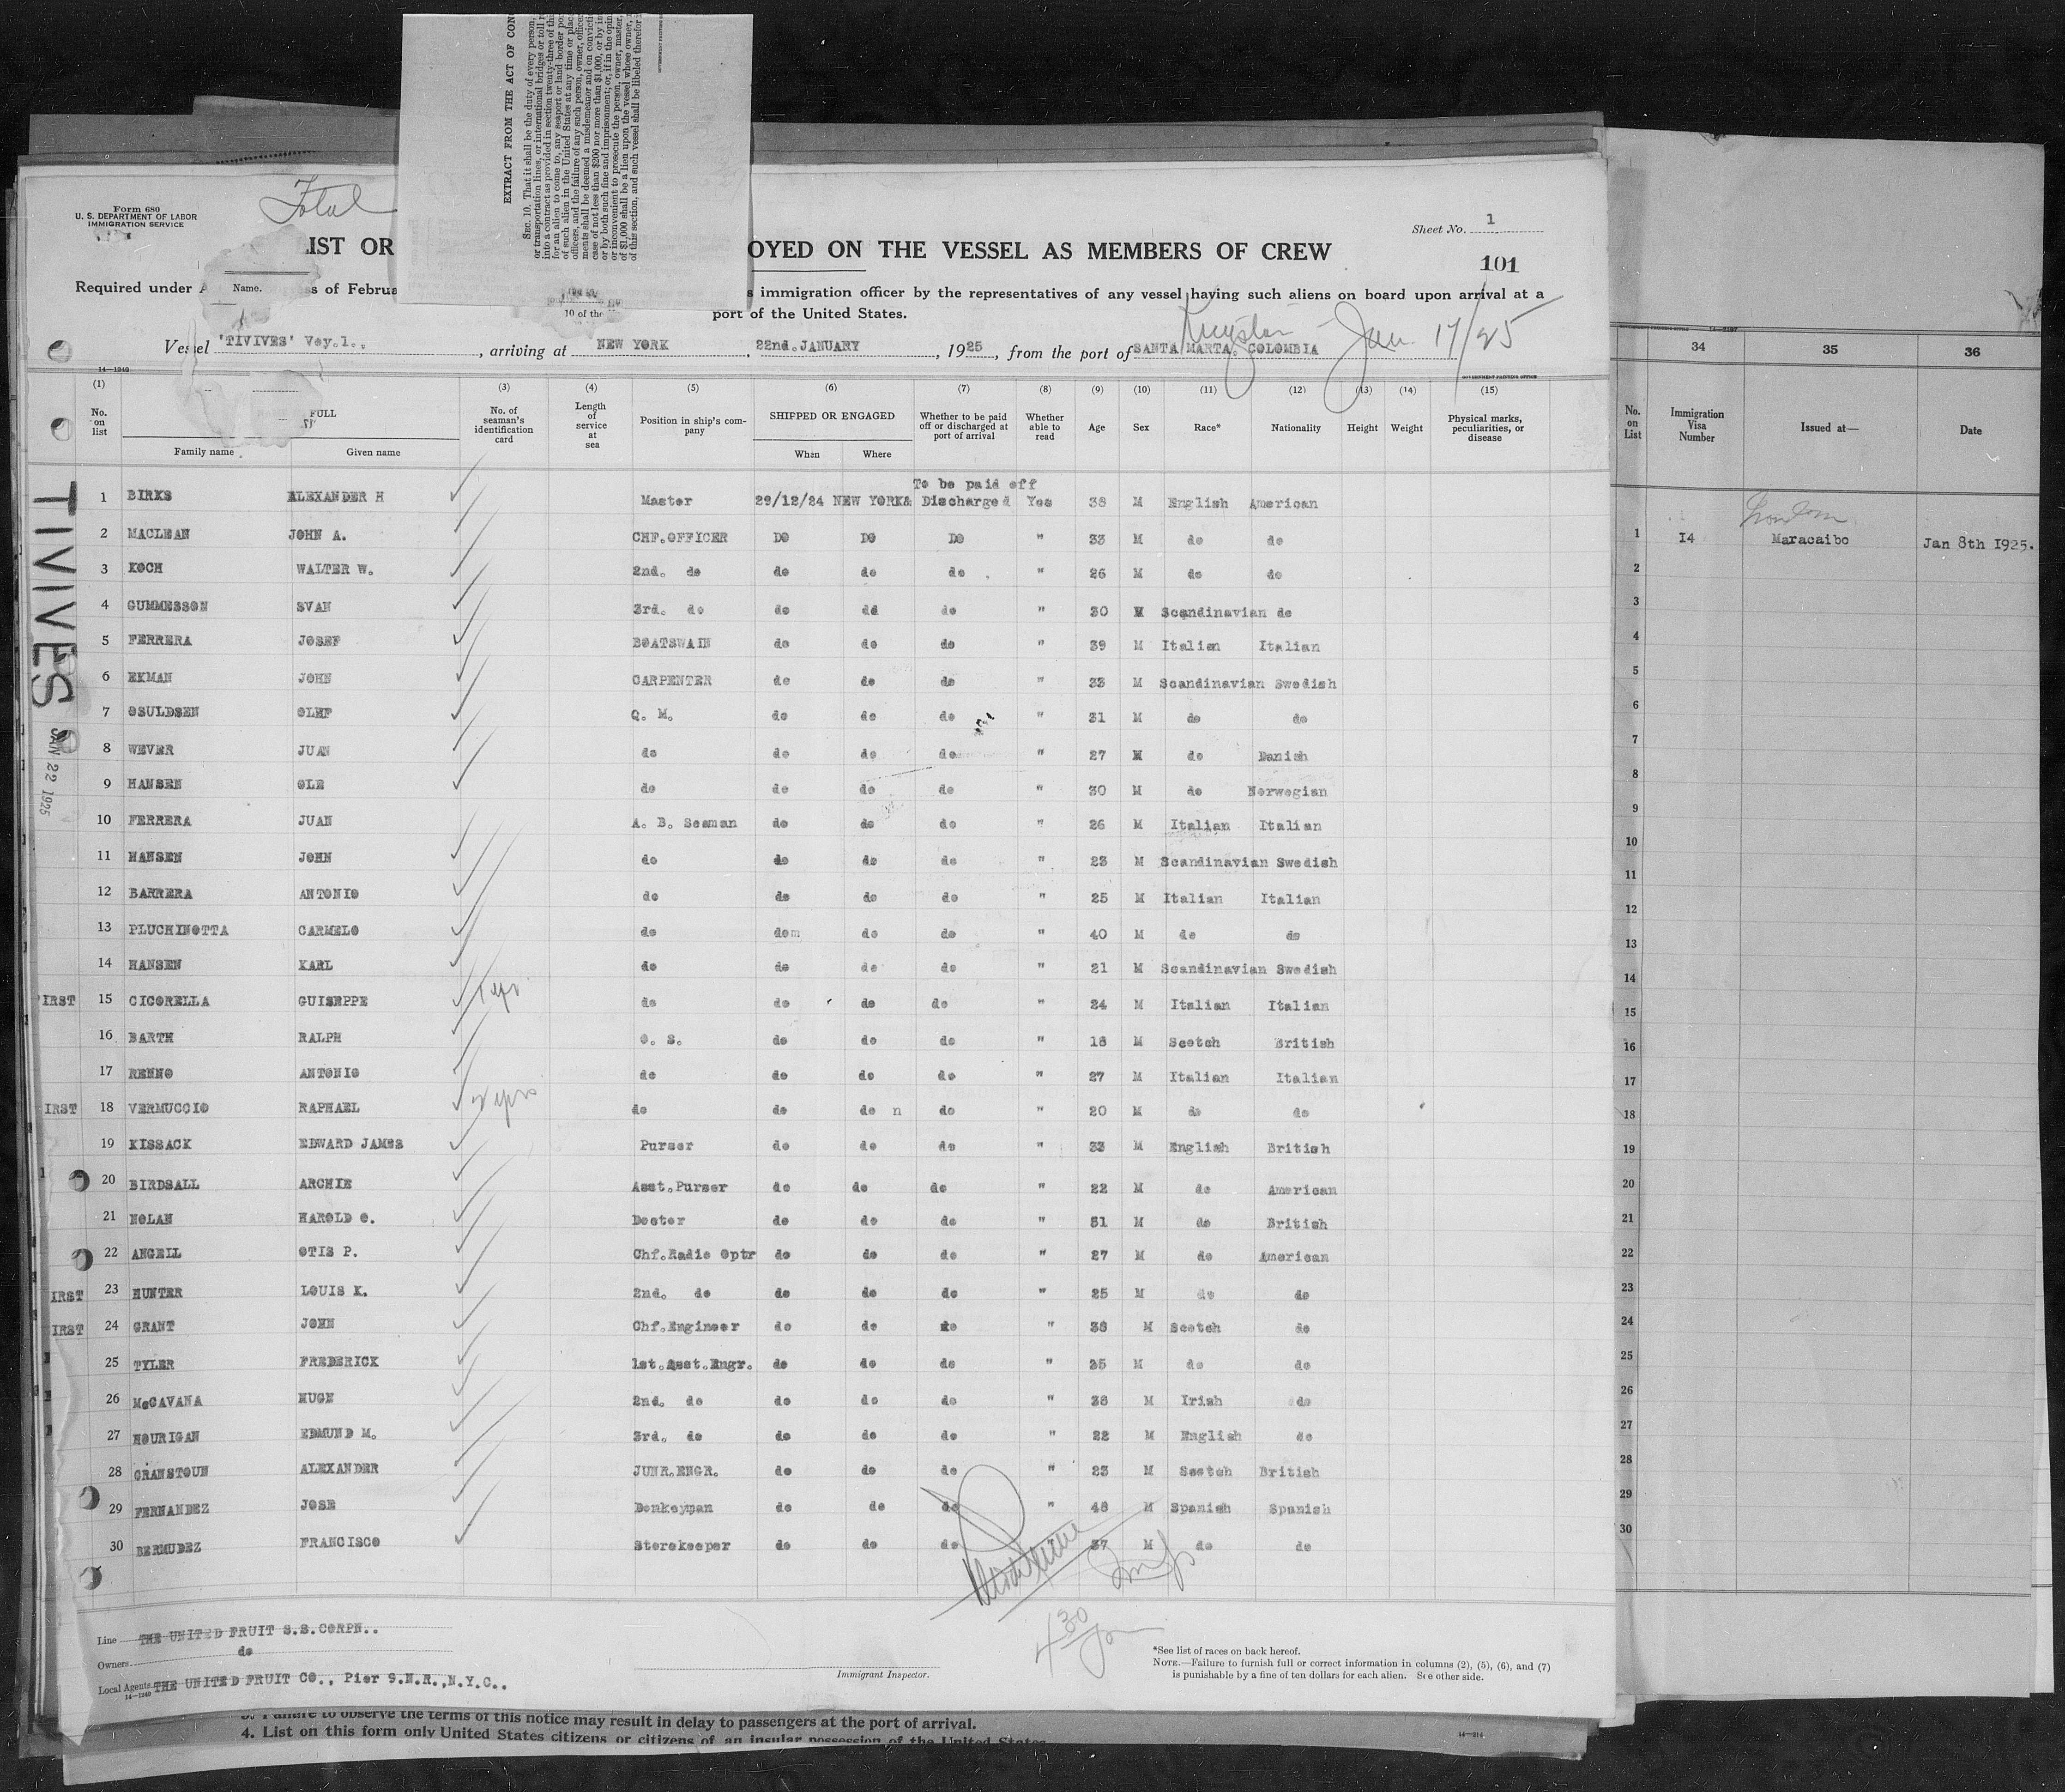 EXTRACT FROM THE ACT OF CON
SEC. 10. That it shall be the duty of every person,
or transportation lines, or international bridges or toll r
into a contract as provided in section twenty-three of thi
for an alien to come to, any seaport or land border po
of such alien in the United States at any time or plac
officers, and the failure of any such person, owner, office
ments shall be deemed a misdemeanor and on convicti
case of not less than $200 nor more than $1,000, or by in
or by both such fine and imprisonment; or, if in the opin
or inconvenient to prosecute the person, owner, master,
of $1,000 shall be a lien upon the vessel whose owner,
of this section, and such vessel shall be libeled therefor i
Form 680
U. S. DEPARTMENT OF LABOR
IMMIGRATION SERVICE
Total
Sheet No. 1
LIST OR OYED ON THE VESSEL AS MEMBERS OF CREW
101
Required under A Name. s of Februa s immigration officer by the representatives of any vessel having such aliens on board upon arrival at a
10 of the
port of the United States.
Kingston - Jan 17/25
Vessel 'TIVIVES' Voy.1.. , arriving at NEW YORK 22nd.JANUARY , 1925, from the port of SANTA MARTA. COLOMBIA
14-1240
GOVERNMENT PRINTING OFFICE
(1) (3) (4) (5) (6) (7) (8) (9) (10) (11) (12) (13) (14) (15)
No. on list FULL Family name Given name No. of seaman's identification card Length of service at sea Position in ship's company SHIPPED OR ENGAGED When Where Whether to be paid off or discharged at port of arrival Whether able to read Age Sex Race* Nationality Height Weight Physical marks, peculiarities, or disease
To be paid off
1 BIRKS ALEXANDER H Master 29/12/24 NEW YORK& Discharged Yes 38 M English American
2 MACLEAN JOHN A. CHF.OFFICER DO DO DO " 33 M do do
3 KOCH WALTER W. 2nd. do do do do " 26 M do do
4 GUMMESSON SVAN 3rd. do do dd do " 30 M Scandinavian do
5 FERRERA JOSEF BOATSWAIN do do do " 39 M Italian Italian
6 EKMAN JOHN CARPENTER do do do " 33 M Scandinavian Swedish
7 OSULDSEN OLHF Q. M. do do do " 31 M do do
8 WEVER JUAN do do do do " 27 M do Danish
9 HANSEN OLE do do do do " 30 M do Norwegian
10 FERRERA JUAN A. B. Seaman do do do " 26 M Italian Italian
11 HANSEN JOHN do do do do " 23 M Scandinavian Swedish
12 BARRERA ANTONIO do do do do " 25 M Italian Italian
13 PLUCHINOTTA CARMELO do dom do do " 40 M do do
14 HANSEN KARL do do do do " 21 M Scandinavian Swedish
IRST 15 CICORELLA GUISEPPE do do do do " 24 M Italian Italian
16 BARTH RALPH O. S. do do do " 18 M Scotch British
17 RENNO ANTONIO do do do do " 27 M Italian Italian
IRST 18 VERMUCCIO RAPHAEL 2 yrs do do do n do " 20 M do do
19 KISSACK EDWARD JAMES Purser do do do " 33 M English British
20 BIRDSALL ARCHIE Asst.Purser do do do " 22 M do American
21 NOLAN HAROLD O. Doctor do do do " 51 M do British
22 ANGELL OTIS P. Chf.Radio Optr do do do " 27 M do American
IRST 23 HUNTER LOUIS K. 2nd. do do do do " 25 M do do
IRST 24 GRANT JOHN Chf.Engineer do do do " 38 M Scotch do
25 TYLER FREDERICK 1st.Asst.Engr. do do do " 35 M do do
26 McCAVANA HUGH 2nd. do do do do " 38 M Irish do
27 HOURIGAN EDMUND M. 3rd. do do do do " 22 M English do
28 CRANSTOUN ALEXANDER JUNR.ENGR. do do do " 23 M Scotch British
29 FERNANDEZ JOSE Donkeyman do do do " 48 M Spanish Spanish
30 BERMUDEZ FRANCISCO Storekeeper do do do 37 M do do
TIVIVES
JAN 22 1925
4 30
Line THE UNITED FRUIT S.S.CORPN..
Owners do
Local Agents THE UNITED FRUIT CO., Pier 9.N.R.,N.Y.C..
14-1240
Immigrant Inspector.
*See list of races on back hereof.
NOTE.—Failure to furnish full or correct information in columns (2), (5), (6), and (7)
is punishable by a fine of ten dollars for each alien. See other side.
34 35 36
No. on List Immigration Visa Number Issued at— Date
London
1 14 Maracaibo Jan 8th 1925.
2
3
4
5
6
7
8
9
10
11
12
13
14
15
16
17
18
19
20
21
22
23
24
25
26
27
28
29
30
3. Failure to observe the terms of this notice may result in delay to passengers at the port of arrival.
4. List on this form only United States citizens or citizens of an insular possession of the United States
14-214